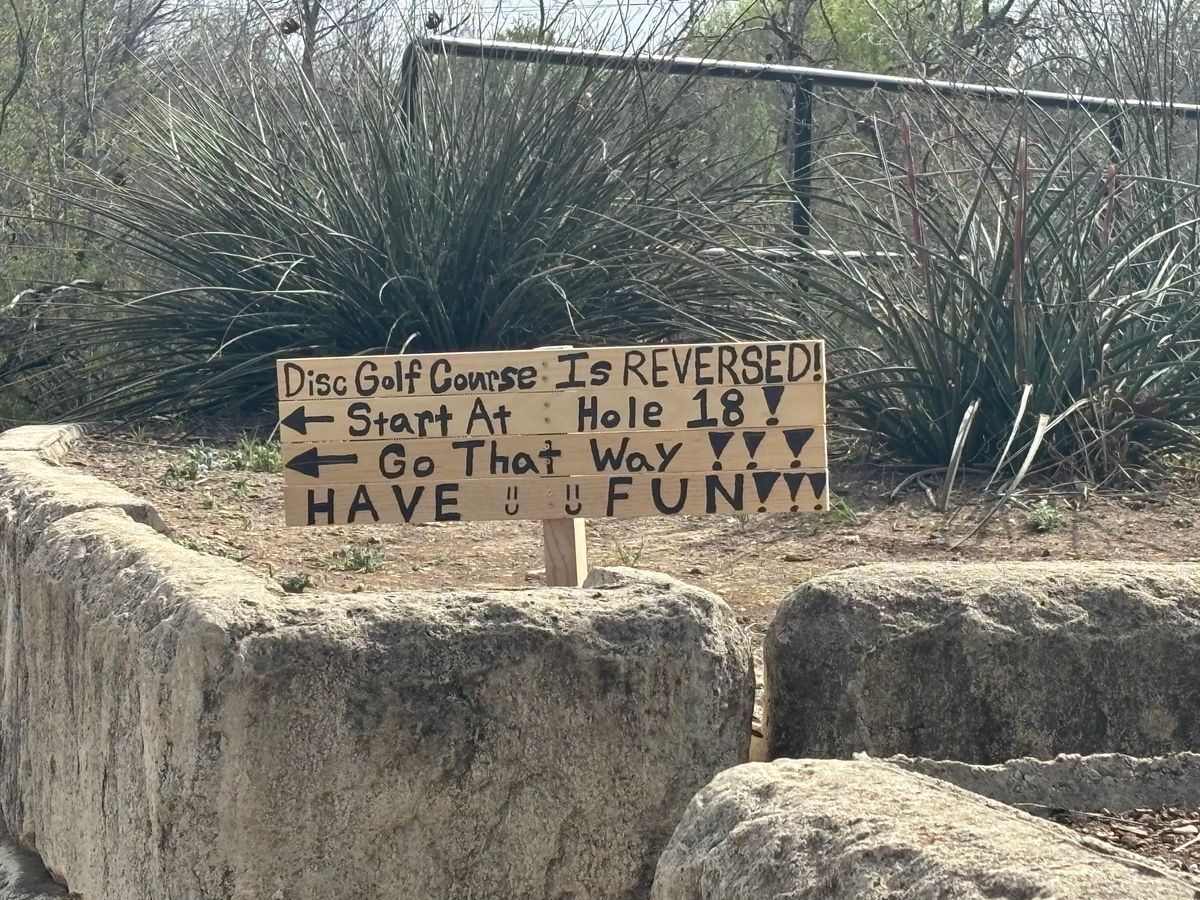 Disc Golf Course Is REVERSED!
← Start At Hole 18!
← Go That Way !!!
HAVE :) :) FUN!!!